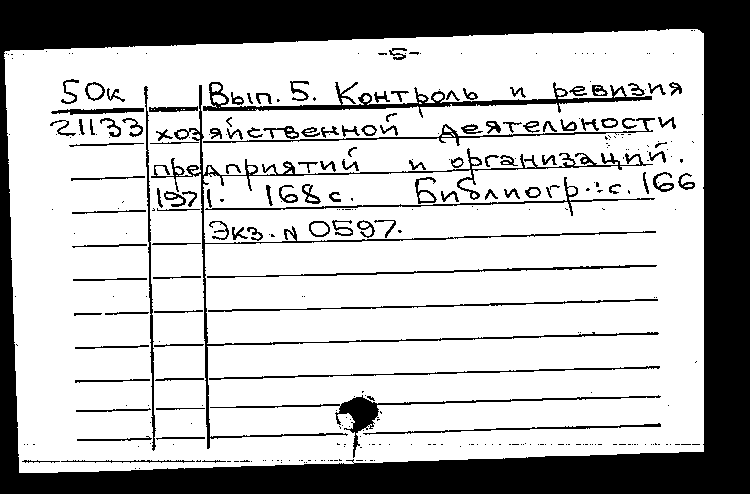 -5-
50к Вып. 5. Контроль и ревизия
21133 хозяйственной деятельности
предприятий и организаций.
1971. 168 с. Библиогр.: с. 166
Экз. N 0597.